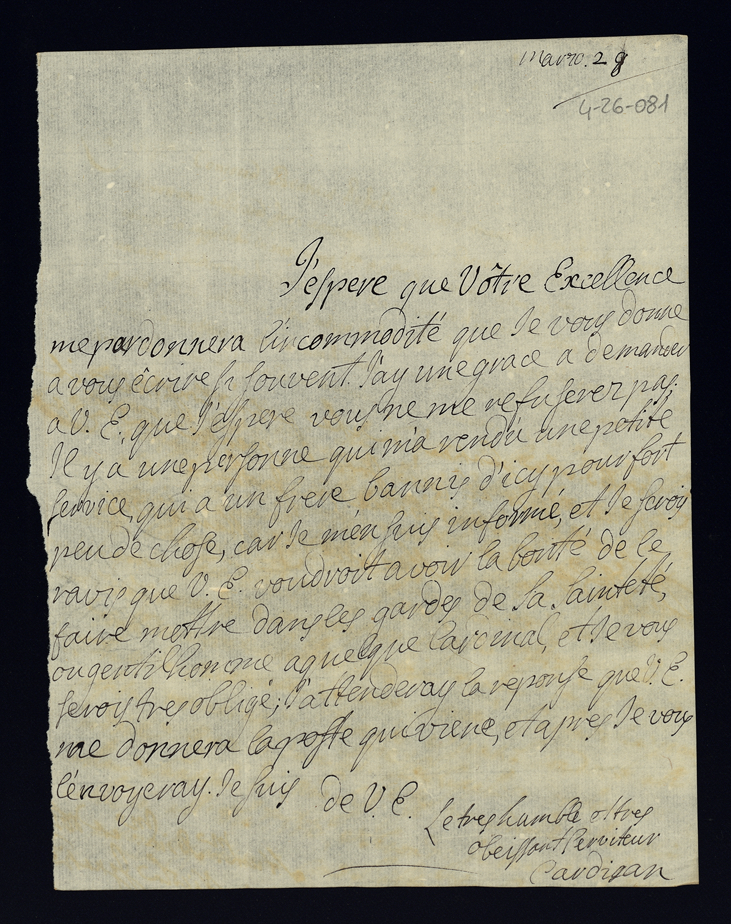 Marzo. 28
4-26-081
J'espere que Vôtre Excellence
me pardonnera l'incommodité que Je vous donne
a vous êcrire si souvent. J'ay une grace a demander
a V. E. que J'espere vous ne me refuserez pas.
Il y a une personne qui m'a rendu une petite
service, qui a un frere bannis d'icy pour fort
peu de chose, car Je m'en suis informé, et Je serois
ravis que V. E. voudroit avoir la bonté de le
faire mettre dans les gardes de Sa Sainteté,
ou gentilhomme a quelque Cardinal, et Je vous
serois tres obligé; J'attenderay la reponse que V. E.
me donnera la poste qui viene, et apres Je vous
l'envoyeray. Je suis de V. E.
Le tres humble et tres
obeissant Serviteur
Cardigan